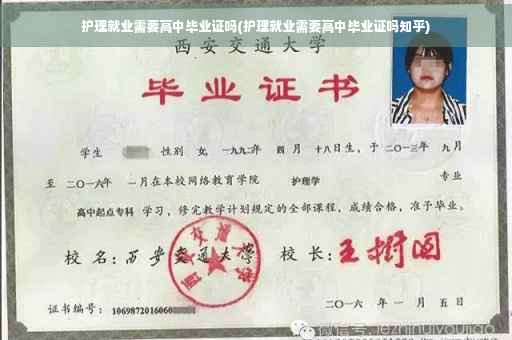 护理就业需要高中毕业证吗(护理就业需要高中毕业证吗知乎)
西安交通大学
毕业证书
学生 性别 女, 一九九二年 四 月 十八日生, 于 二〇一三年 九月
至 二〇一六年 一月在本校网络教育学院 护理学 专业
高中起点专科 学习, 修完教学计划规定的全部课程, 成绩合格, 准予毕业。
校 名: 西安交通大学 校 长: 王树国
西安交通大学
证书编号: 1069872016060
二〇一六 年 一 月 五 日
微信号: jiezhihuiyoujiao